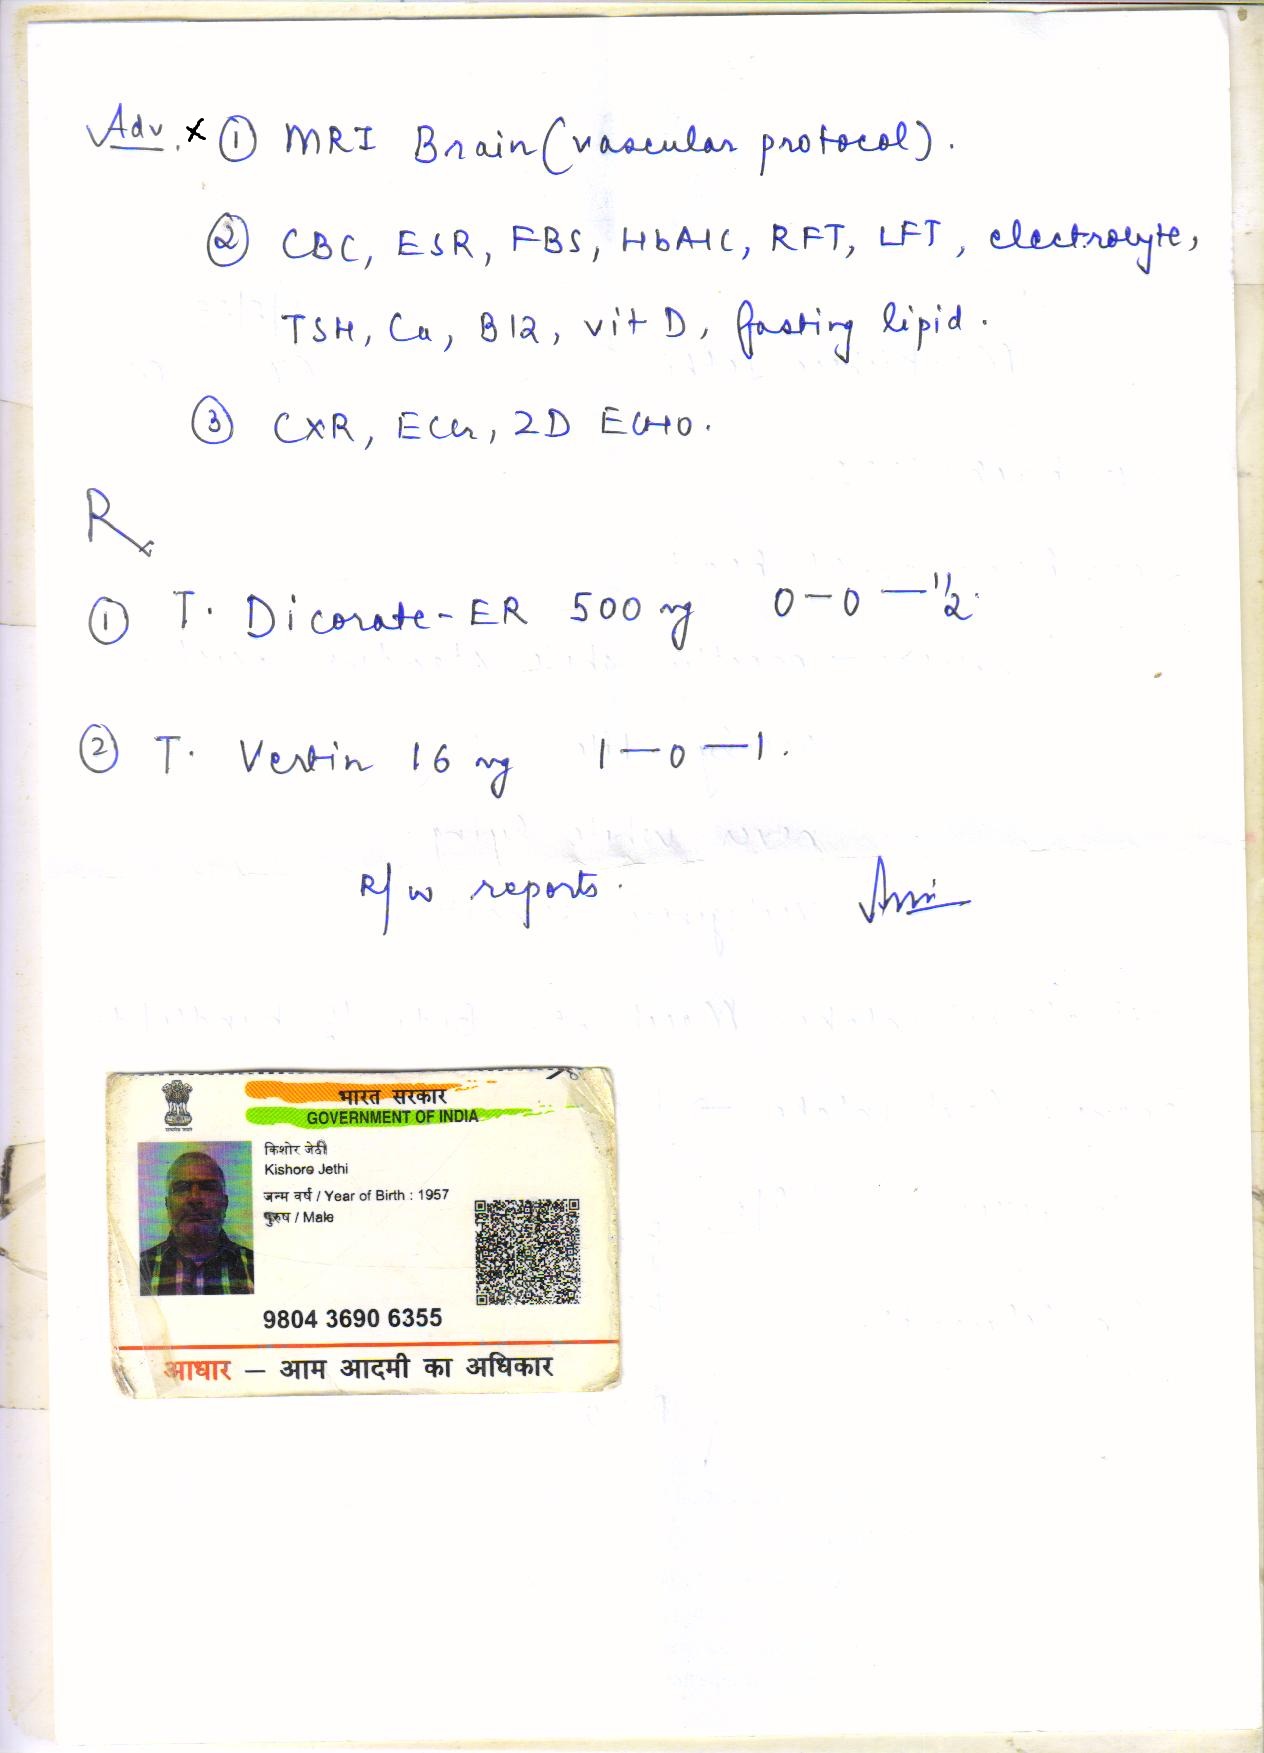 Adv. x ① MRI Brain (vascular protocol).
② CBC, ESR, FBS, HbA1C, RFT, LFT, electrolyte,
TSH, Ca, B12, vit D, fasting lipid.
③ CXR, ECG, 2D ECHO.
Rx
① T. Dicorate-ER 500 mg 0-0-1/2.
② T. Vertin 16 mg 1-0-1.
R/w reports.
भारत सरकार
GOVERNMENT OF INDIA
किशोर जेठी
Kishore Jethi
जन्म वर्ष / Year of Birth : 1957
पुरुष / Male
9804 3690 6355
आधार – आम आदमी का अधिकार